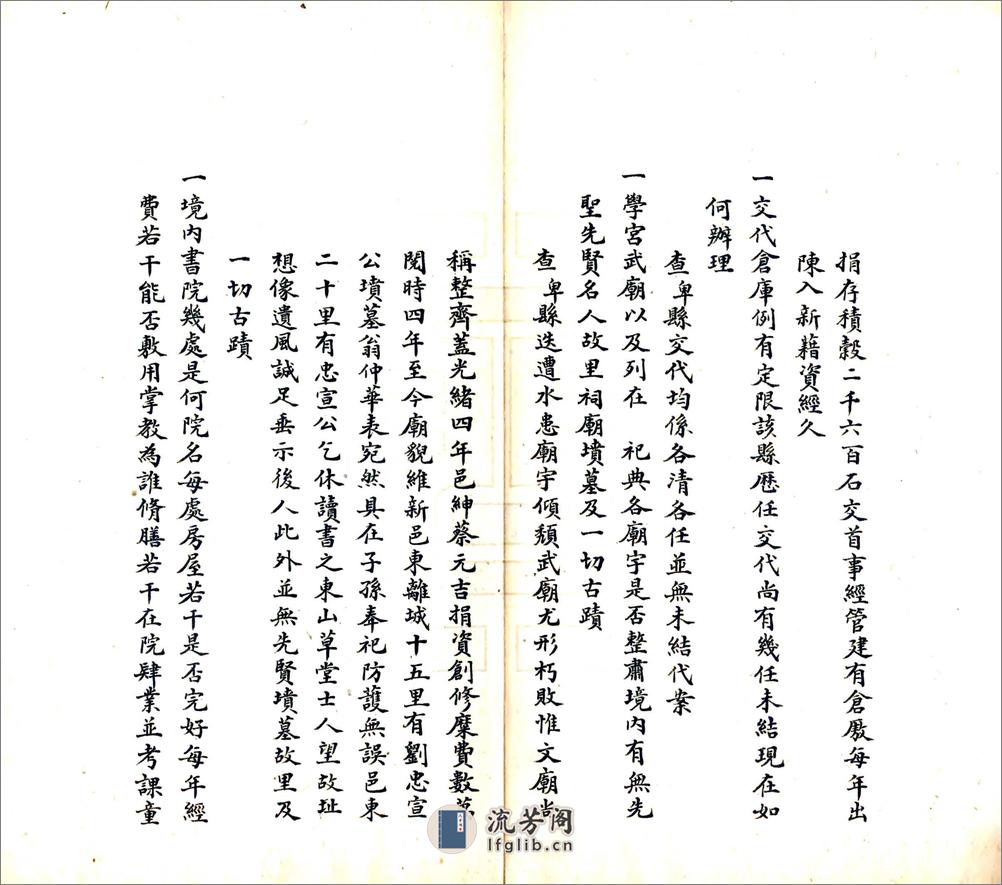 捐存積穀二千六百石交首事經管建有倉廒每年出
陳入新藉資經久
一交代倉庫例有定限該縣歷任交代尚有幾任未結現在如
何辦理
查卑縣交代均係各清各任並無未結代案
一學宮武廟以及列在 祀典各廟宇是否整肅境內有無先
聖先賢名人故里祠廟墳墓及一切古蹟
查卑縣迭遭水患廟宇傾頹武廟尤形朽敗惟文廟尚
稱整齊蓋光緒四年邑紳蔡元吉捐資創修糜費數萬
閱時四年至今廟貌維新邑東離城十五里有劉忠宣
公墳墓翁仲華表宛然具在子孫奉祀防護無誤邑東
二十里有忠宣公乞休讀書之東山草堂士人望故址
想像遺風誠足垂示後人此外並無先賢墳墓故里及
一切古蹟
一境內書院幾處是何院名每處房屋若干是否完好每年經
費若干能否敷用掌教為誰脩膳若干在院肄業並考課童
流芳阁
lfglib.cn